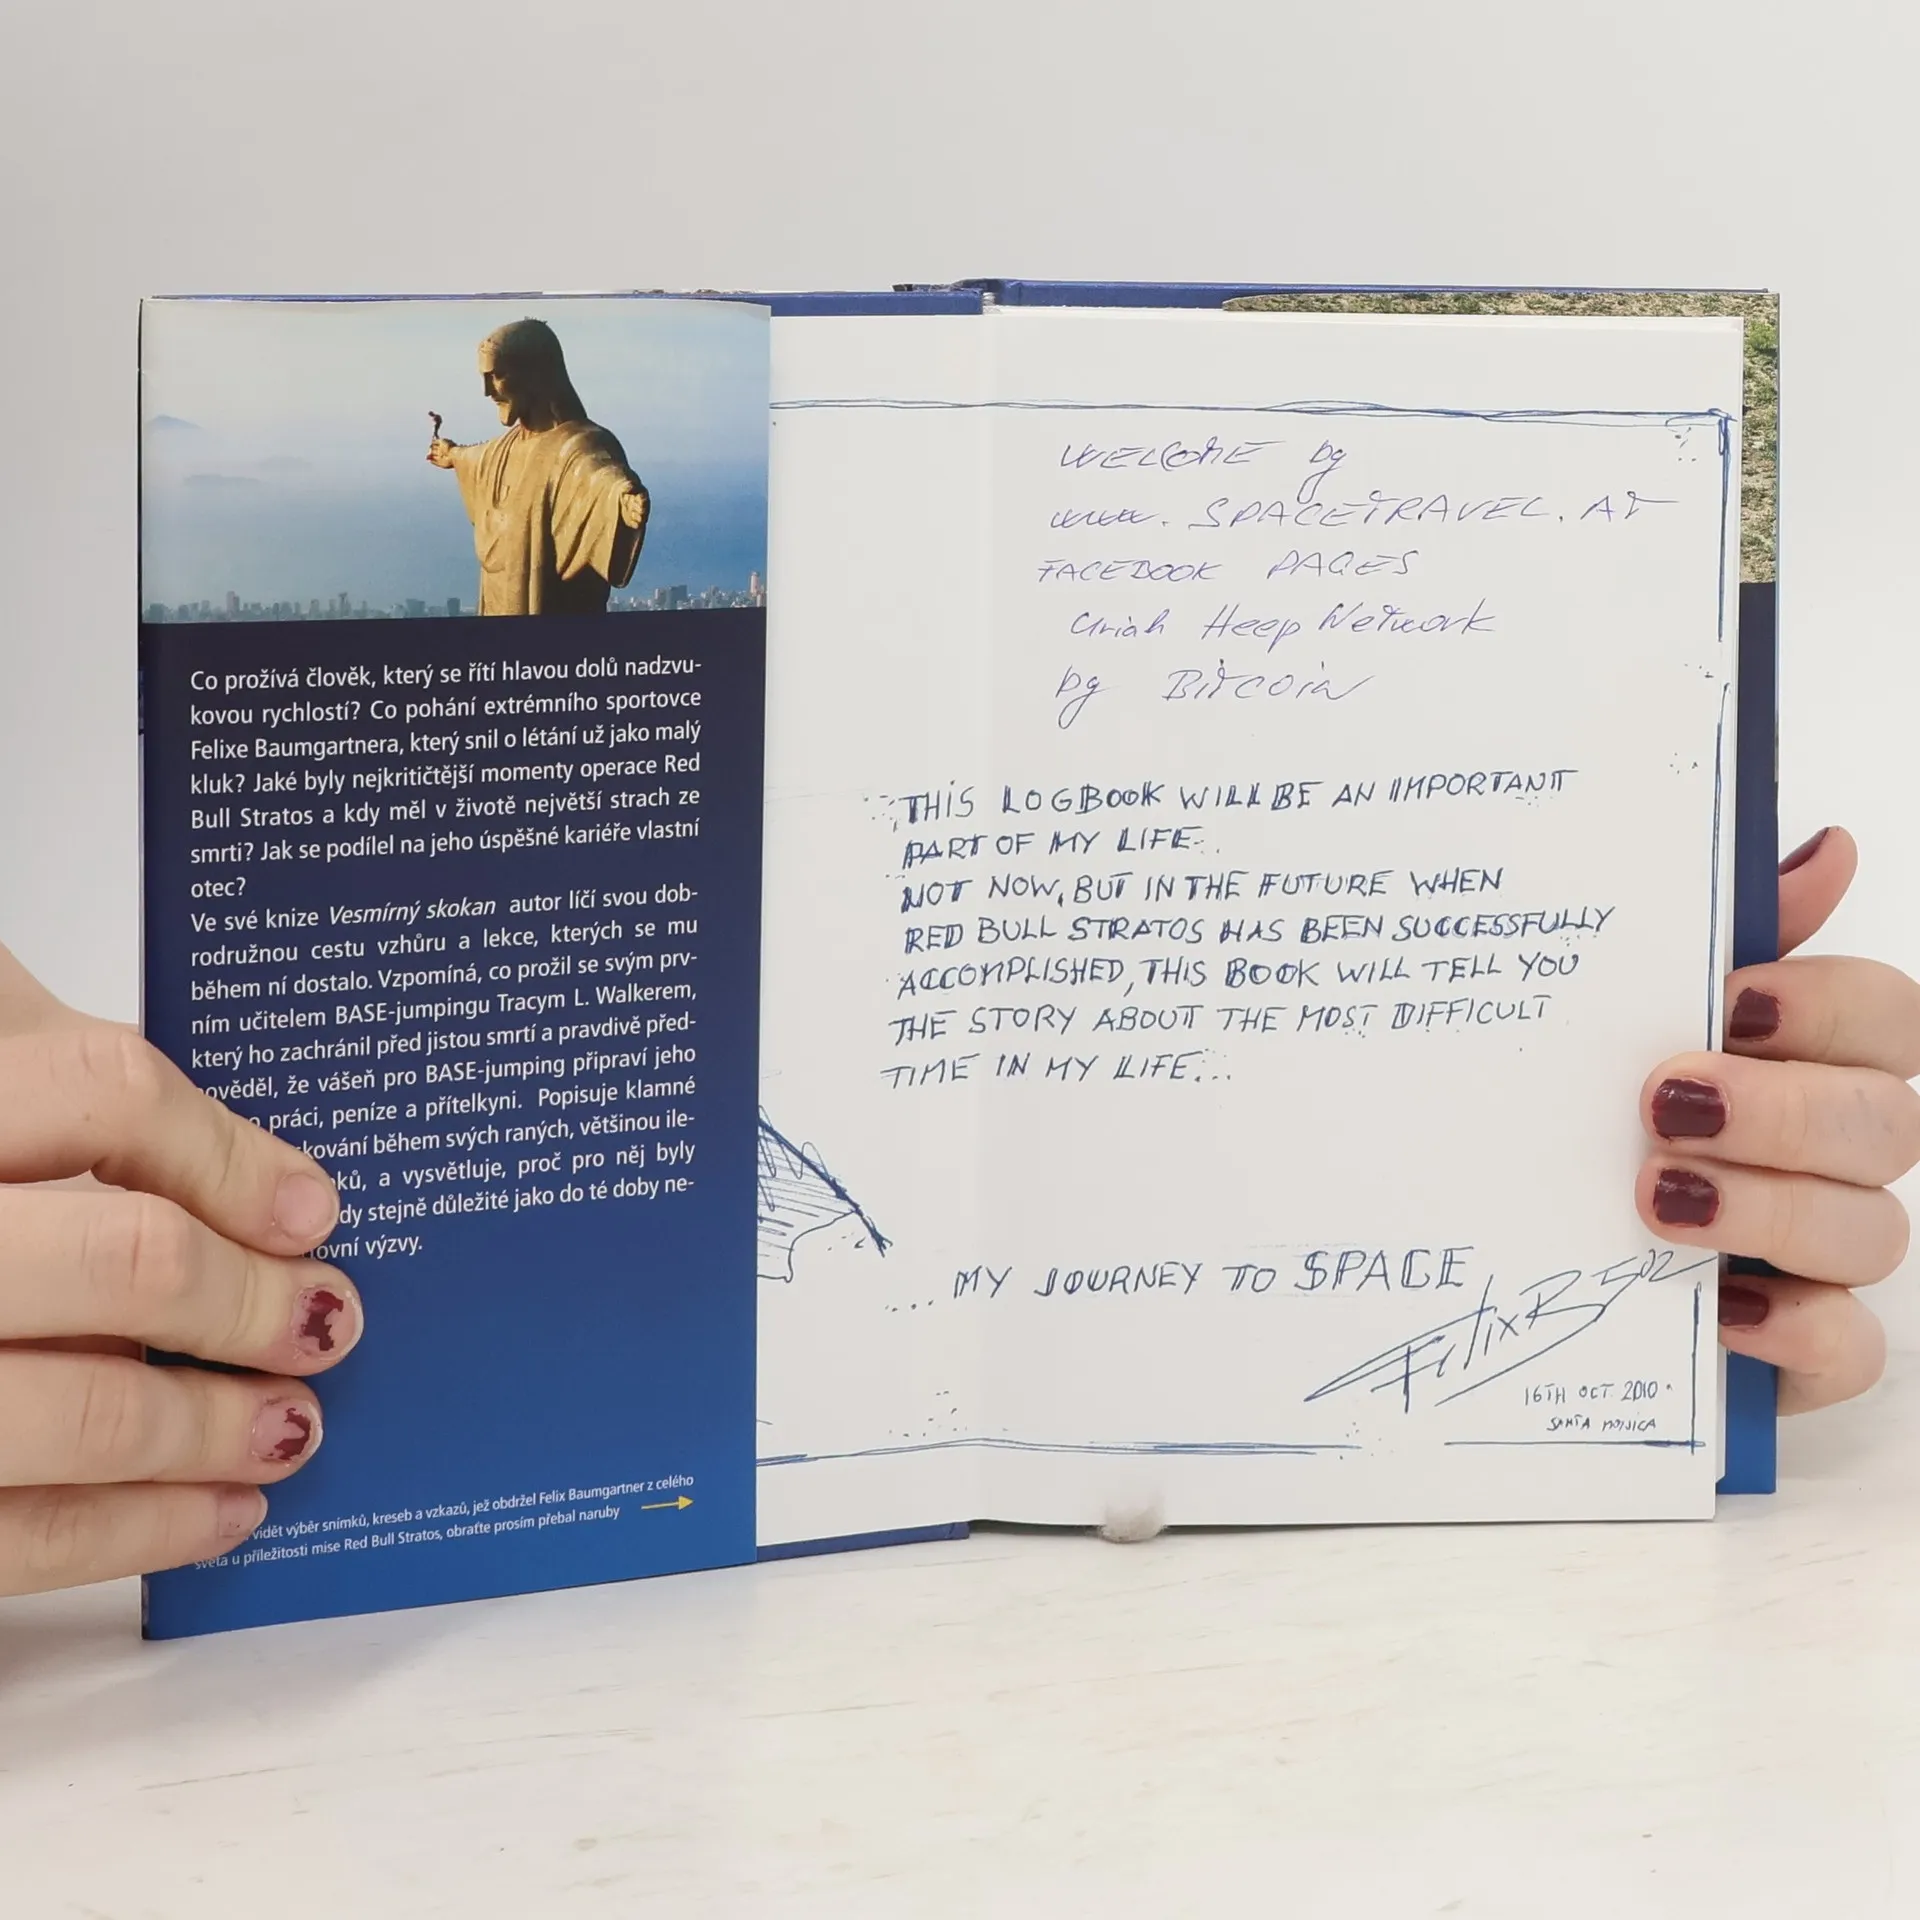 Co prožívá člověk, který se řítí hlavou dolů nadzvu-
kovou rychlostí? Co pohání extrémního sportovce
Felixe Baumgartnera, který snil o létání už jako malý
kluk? Jaké byly nejkritičtější momenty operace Red
Bull Stratos a kdy měl v životě největší strach ze
smrti? Jak se podílel na jeho úspěšné kariéře vlastní
otec?
Ve své knize Vesmírný skokan autor líčí svou dob-
rodružnou cestu vzhůru a lekce, kterých se mu
během ní dostalo. Vzpomíná, co prožil se svým prv-
ním učitelem BASE-jumpingu Tracym L. Walkerem,
který ho zachránil před jistou smrtí a pravdivě před-
pověděl, že vášeň pro BASE-jumping připraví jeho
práci, peníze a přítelkyni. Popisuje klamné
kování během svých raných, většinou ile-
ků, a vysvětluje, proč pro něj byly
dy stejně důležité jako do té doby ne-
ovní výzvy.
vidět výběr snímků, kreseb a vzkazů, jež obdržel Felix Baumgartner z celého
světa u příležitosti mise Red Bull Stratos, obraťte prosím přebal naruby
WELCOME by
www. SPACETRAVEL. AT
FACEBOOK PAGES
Uriah Heep Network
by BITCOIN
THIS LOGBOOK WILL BE AN IMPORTANT
PART OF MY LIFE.
NOT NOW, BUT IN THE FUTURE WHEN
RED BULL STRATOS HAS BEEN SUCCESSFULLY
ACCOMPLISHED, THIS BOOK WILL TELL YOU
THE STORY ABOUT THE MOST DIFFICULT
TIME IN MY LIFE...
.... MY JOURNEY TO SPACE
Felix B 502
16TH OCT. 2010
SANTA MONICA